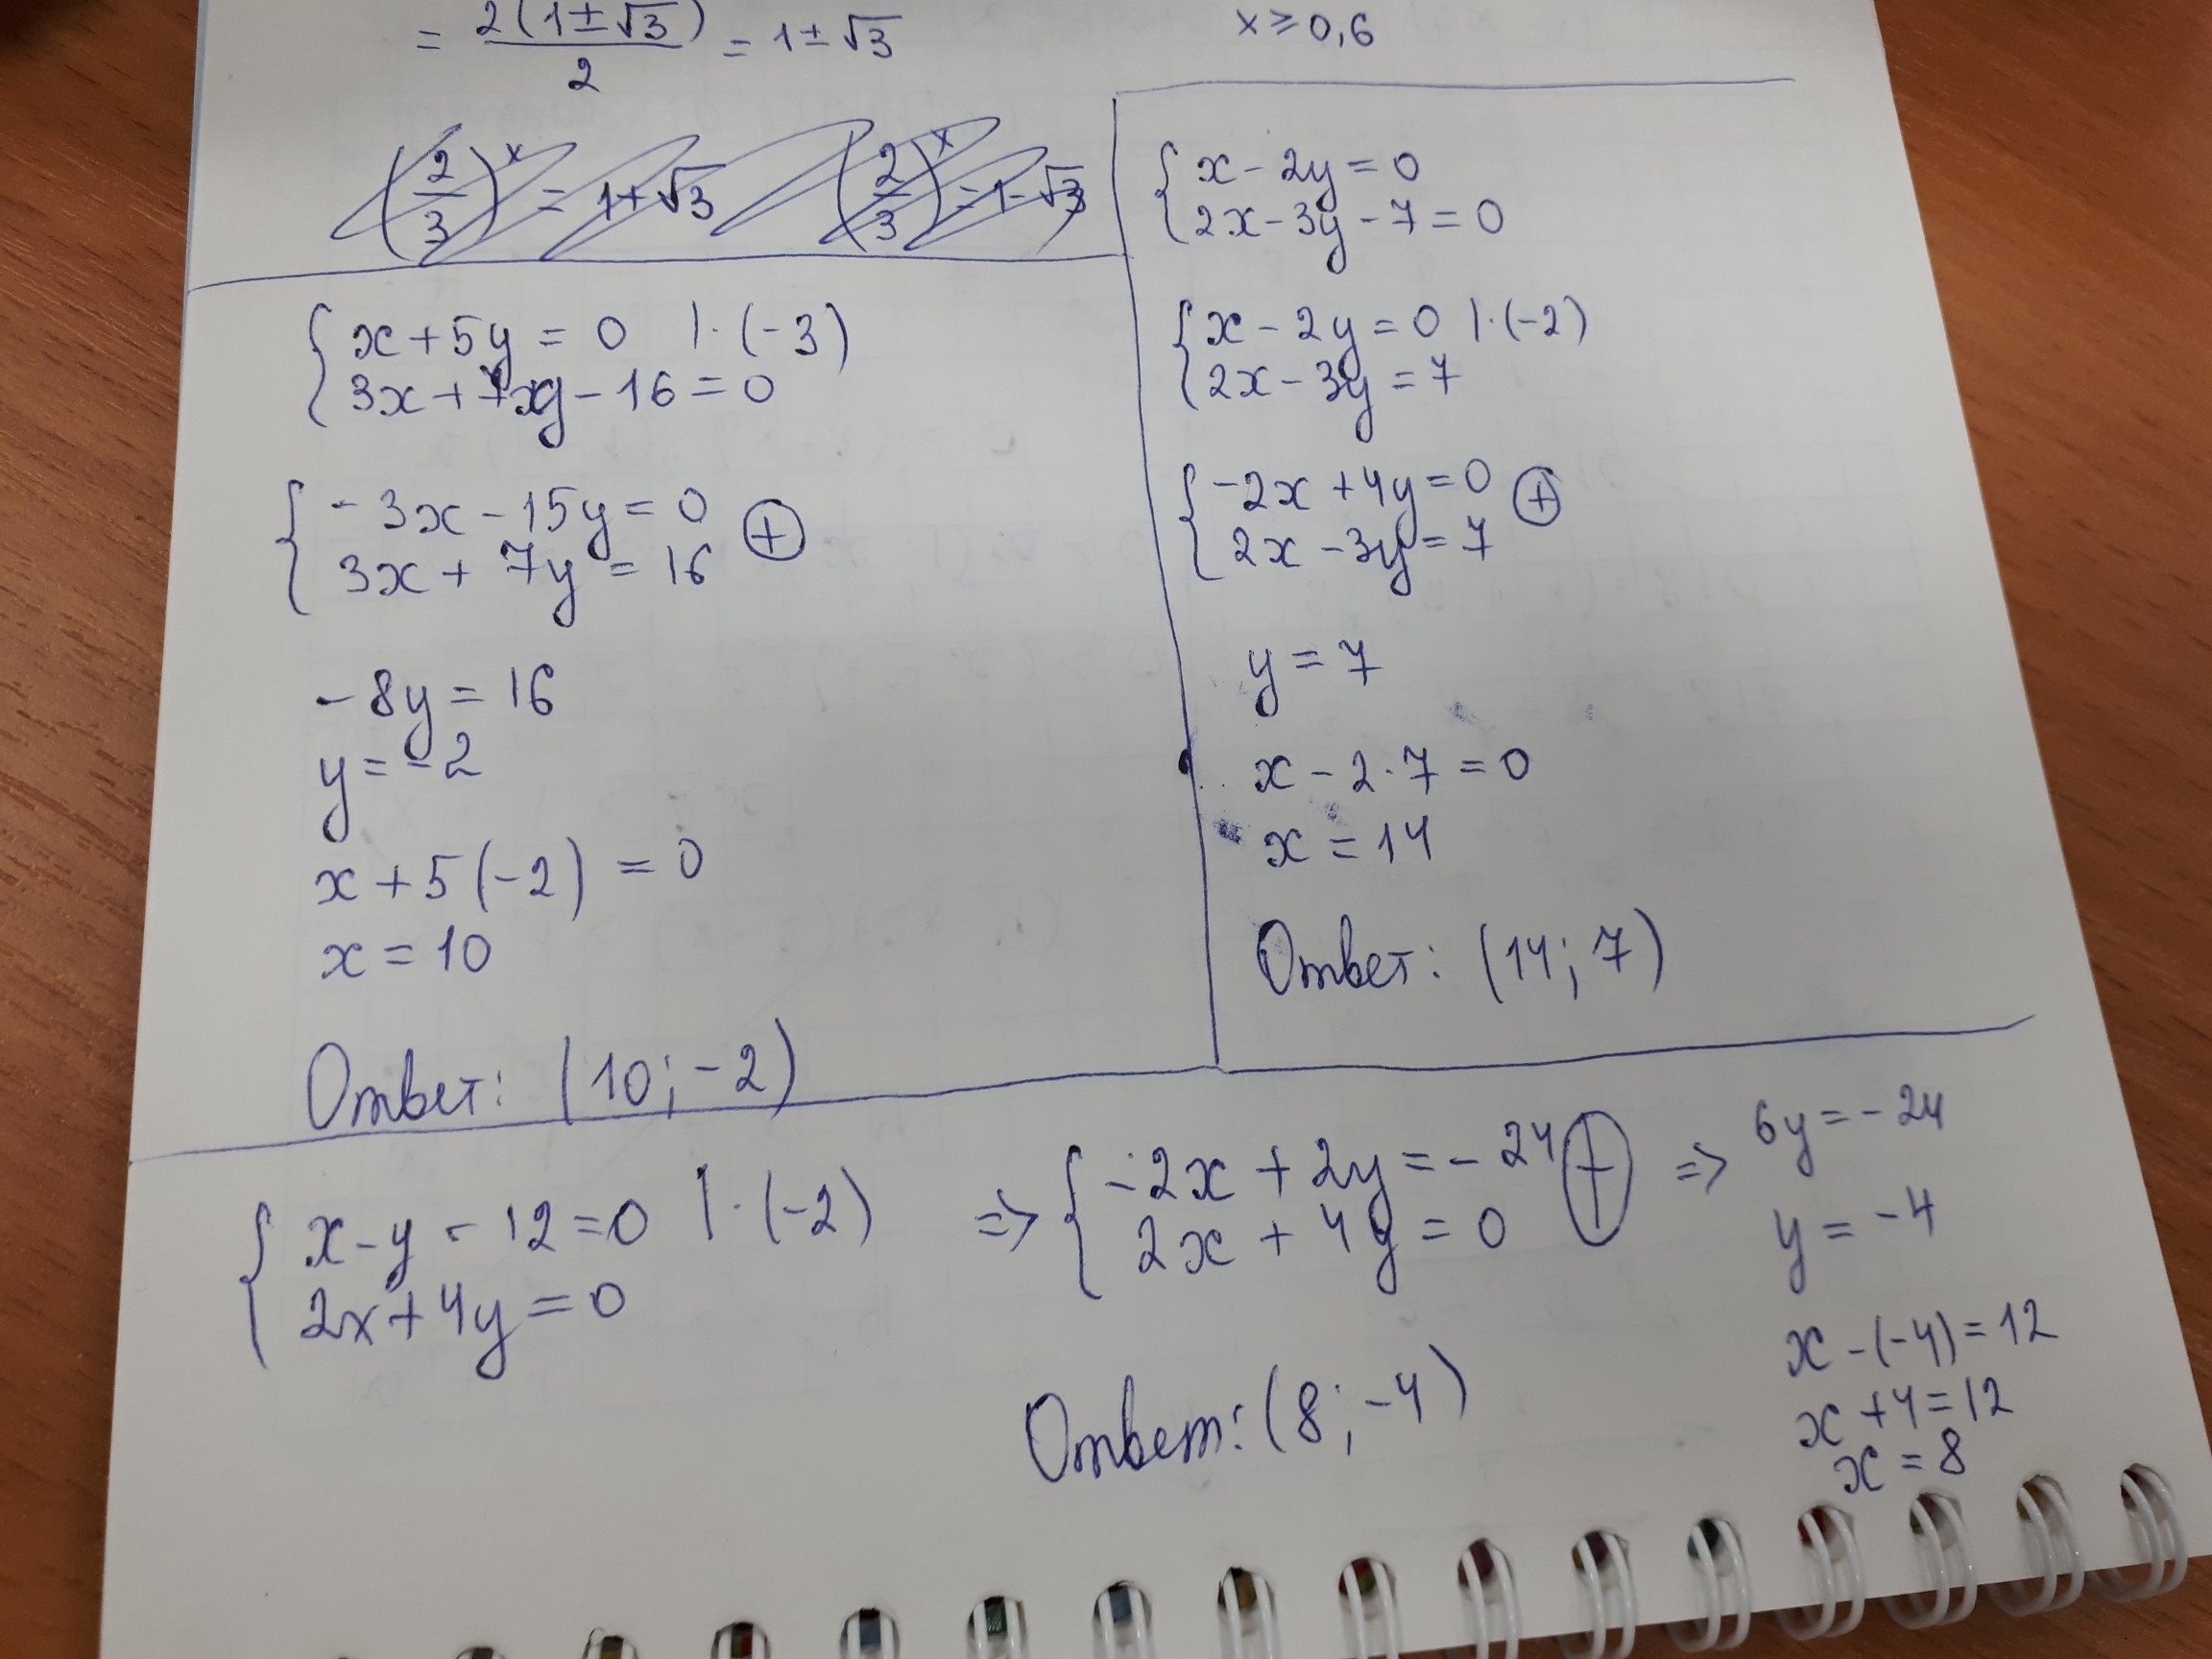 = 2(1±√3)/2 = 1±√3
x ≥ 0,6
(2/3)^x = 1+√3 (2/3)^x = 1-√3
{ x + 5y = 0 |·(-3)
3x + 7y - 16 = 0
{ -3x - 15y = 0 ⊕
3x + 7y = 16
-8y = 16
y = -2
x + 5(-2) = 0
x = 10
Ответ: (10; -2)
{ x - 2y = 0
2x - 3y - 7 = 0
{ x - 2y = 0 |·(-2)
2x - 3y = 7
{ -2x + 4y = 0 ⊕
2x - 3y = 7
y = 7
x - 2·7 = 0
x = 14
Ответ: (14; 7)
{ x - y - 12 = 0 |·(-2)
2x + 4y = 0
=> { -2x + 2y = -24 ⊕ =>
2x + 4y = 0
6y = -24
y = -4
x - (-4) = 12
x + 4 = 12
x = 8
Ответ: (8; -4)